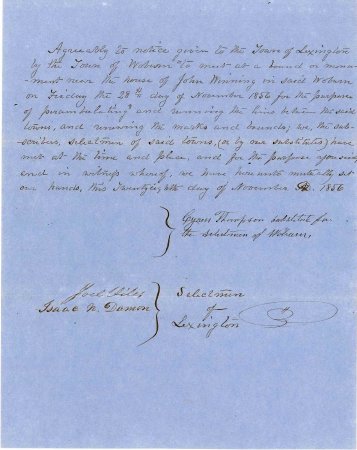 Agreeably to notice given to the Town of Lexington
by the Town of Woburn to meet at a bound or monu-
ment near the house of John Winning in said Woburn
on Friday the 28th day of November 1856 for the purpose
of perambulating and running the line between the said
towns, and renewing the marks and bounds; we, the sub-
scribers Selectmen of said towns, (or by our substitutes) have
met at the time and place, and for the purpose
and in witness whereof, we have hereunto mutually set
our hands, this Twenty day of November 1856
Cyrus Thompson substitute for
the selectmen of Woburn,
Joel Viles
Isaac N. Damon
Selectmen
of
Lexington